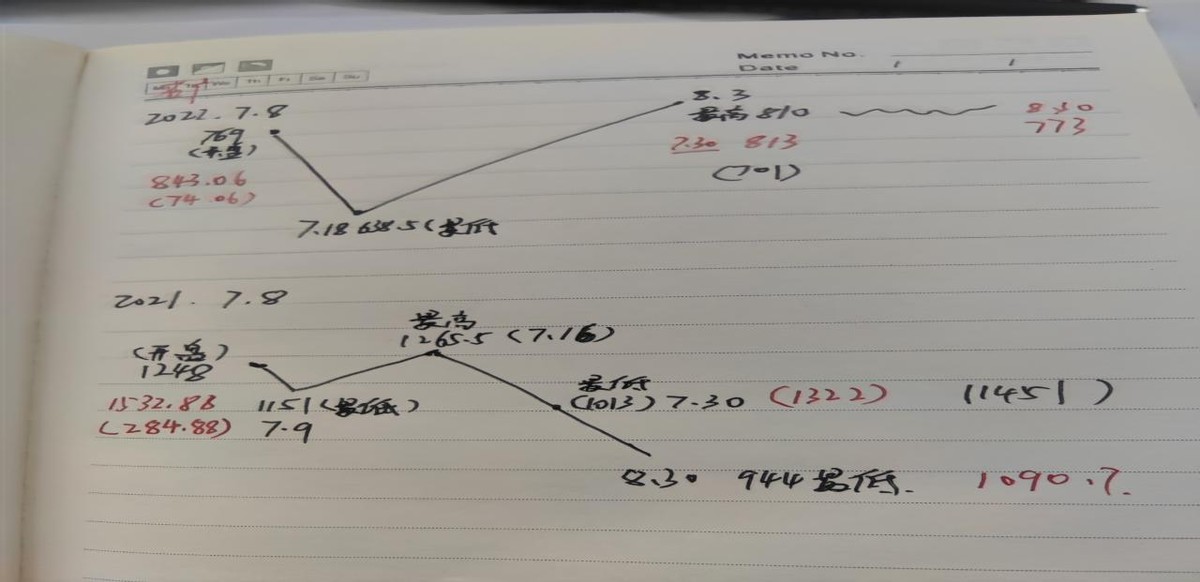 Memo No.
Date / /
Mo Tu We Th Fr Sa Su
2022. 7.8
769
(开盘)
843.06
(74.06)
7.18 638.5 (最低
8.3
最高 810
7.30 813
(701)
830
773
2021. 7.8
(开盘)
1248
1532.88
(284.88)
1151 (最低)
7.9
最高
1265.5 (7.16)
最低
(1013) 7.30 (1322) (1451)
8.30 944 最低. 1090.7.